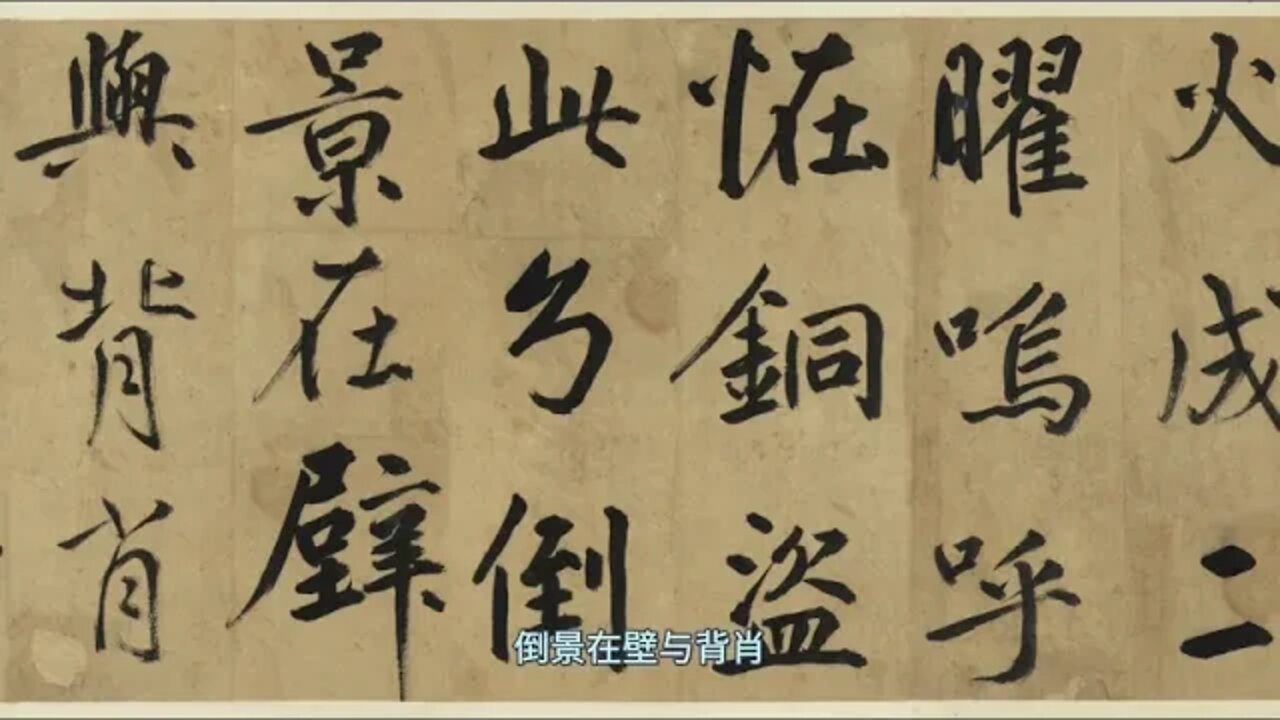 火成二
曜嗚呼
恠銅盜
此巧倒
景在壁
與背肖
倒景在壁与背肖